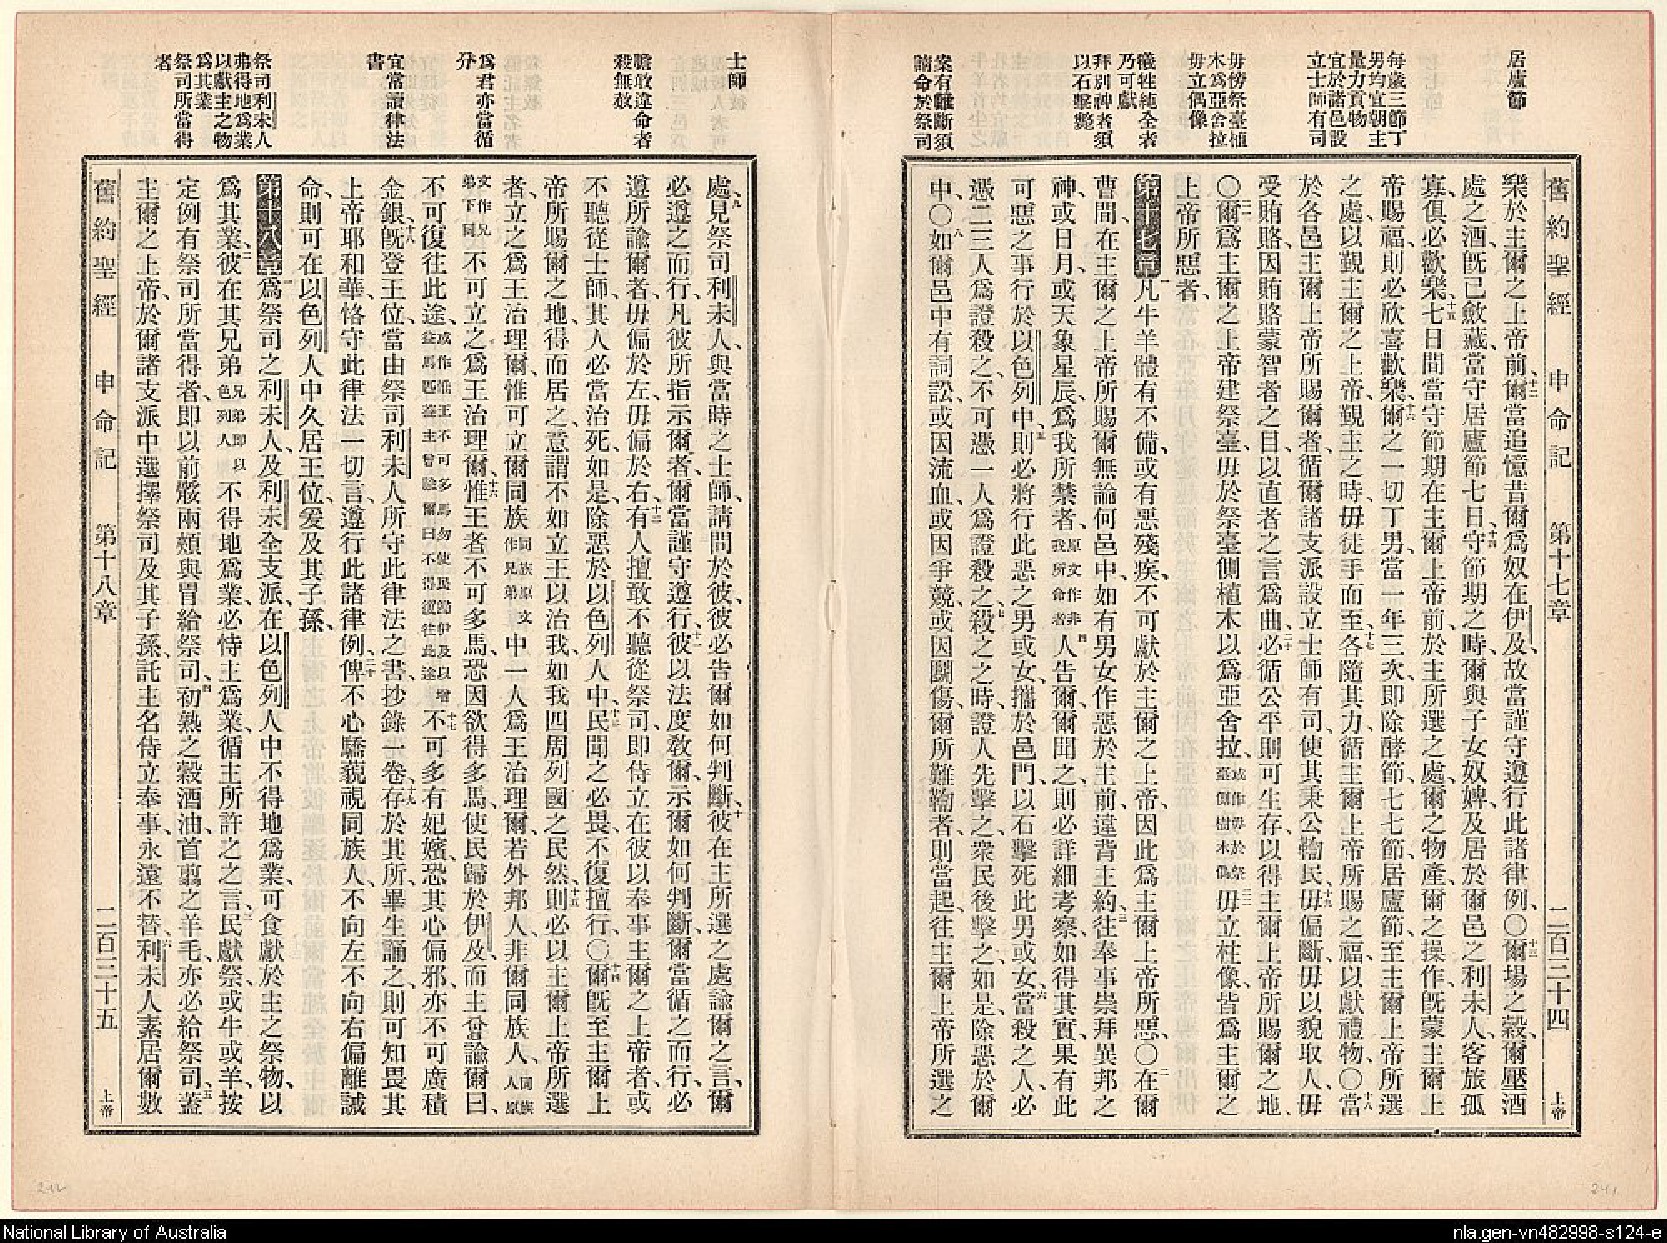 居廬節
每歲三節丁
男均宜朝主
量力貢物
宜於諸邑設
立士師有司
毋傍祭臺植
木爲亞舍拉
毋立偶像
犧牲純全者
乃可獻
拜別神者須
以石擊斃
案有難斷須
請命於祭司
舊約聖經 申命記 第十七章 二百三十四 上帝
樂於主爾之上帝前、十二爾當追憶昔爾爲奴在伊及、故當謹守遵行此諸律例、〇十三爾場之穀、爾壓酒
處之酒、旣已斂藏、當守居廬節七日、十四守節期之時、爾與子女奴婢、及居於爾邑之利未人、客旅孤
寡、俱必歡樂、十五七日間當守節期、在主爾上帝前、於主所選之處、爾之物產、爾之操作、旣蒙主爾上
帝賜福、則必欣喜歡樂、十六爾之一切丁男、當一年三次、卽除酵節、七七節、居廬節、至主爾上帝所選
之處、以覲主爾之上帝、覲主之時、毋徒手而至、十七各隨其力、循主爾上帝所賜之福、以獻禮物、〇十八當
於各邑、主爾上帝所賜爾者、循爾諸支派、設立士師有司、使其秉公鞫民、十九毋偏斷、毋以貌取人、毋
受賄賂、因賄賂蒙智者之目、以直者之言爲曲、二十必循公平、則可生存、以得主爾上帝所賜爾之地、
〇二一爾爲主爾之上帝建祭臺、毋於祭臺側植木以爲亞舍拉、或作毋於祭臺側樹木偶二二毋立柱像、皆爲主爾之
上帝所惡者、
第十七章一凡牛羊體有不備、或有惡殘疾、不可獻於主爾之上帝、因此爲主爾上帝所惡、〇二在爾
曹間、在主爾之上帝所賜爾無論何邑中、如有男女作惡於主前、違背主約、三往奉事崇拜異邦之
神、或日月、或天象星辰、爲我所禁者、原文作非我所命者四人告爾、爾聞之、則必詳細考察、如得其實、果有此
可惡之事行於以色列中、五則必將行此惡之男或女、攜於邑門、以石擊死此男或女、六當殺之人、必
憑二三人爲證殺之、不可憑一人爲證殺之、七殺之之時、證人先擊之、衆民後擊之、如是除惡於爾
中、〇八如爾邑中有詞訟、或因流血、或因爭競、或因鬬傷、爾所難鞫者、則當起往主爾上帝所選之
士師
膽敢違命者
殺無赦
爲君亦當循
分
宜常讀律法
書
祭司利未人
弗得地爲業
以獻主之物
爲其業
祭司所當得
者
處、九見祭司利未人、與當時之士師、請問於彼、彼必告爾如何判斷、十彼在主所選之處、諭爾之言、爾
必遵之而行、凡彼所指示爾者、爾當謹守遵行、十一彼以法度敎爾、示爾如何判斷、爾當循之而行、必
遵所諭爾者、毋偏於左、毋偏於右、十二有人擅敢不聽從祭司、卽侍立在彼以奉事主爾之上帝者、或
不聽從士師、其人必當治死、如是除惡於以色列人中、十三民聞之必畏、不復擅行、〇十四爾旣至主爾上
帝所賜爾之地、得而居之、意謂不如立王以治我、如我四周列國之民然、十五則必以主爾上帝所選
者、立之爲王治理爾、惟可立爾同族同族原文作兄弟中一人爲王治理爾、若外邦人、非爾同族人、同族人原
文作兄弟下同不可立之爲王治理爾、十六惟王者不可多馬、恐因欲得多馬、使民歸於伊及、而主曾諭爾曰、
不可復往此途、或作惟王不可多馬勿使民歸伊及以增益馬匹蓋主曾諭爾曰不得復往此途十七不可多有妃嬪、恐其心偏邪、亦不可廣積
金銀、十八旣登王位、當由祭司利未人所守此律法之書、抄錄一卷、十九存於其所、畢生誦之、則可知畏其
上帝耶和華、恪守此律法一切言、遵行此諸律例、二十俾不心驕、藐視同族人、不向左不向右、偏離誡
命、則可在以色列人中久居王位、爰及其子孫、
第十八章一爲祭司之利未人、及利未全支派、在以色列人中不得地爲業、可食獻於主之祭物、以
爲其業、二彼在其兄弟兄弟卽以色列人不得地爲業、必恃主爲業、循主所許之之言、三民獻祭、或牛或羊、按
定例有祭司所當得者、卽以前骽兩頰與胃給祭司、四初熟之穀酒油、首翦之羊毛、亦必給祭司、五蓋
主爾之上帝、於爾諸支派中、選擇祭司及其子孫、託主名侍立奉事、永遠不替、六利未人素居爾數
舊約聖經 申命記 第十八章 二百三十五 上帝
National Library of Australia
nla.gen-vn482998-s124-e